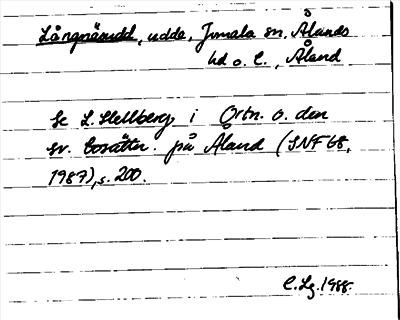 Långnäsudd, udde, Jomala sn. Ålands
hd o. l., Åland
Se L. Hellberg i Ortn. o. den
sv. bosättn. på Åland (SNF 68,
1987), s. 200.
C. Lg. 1988.